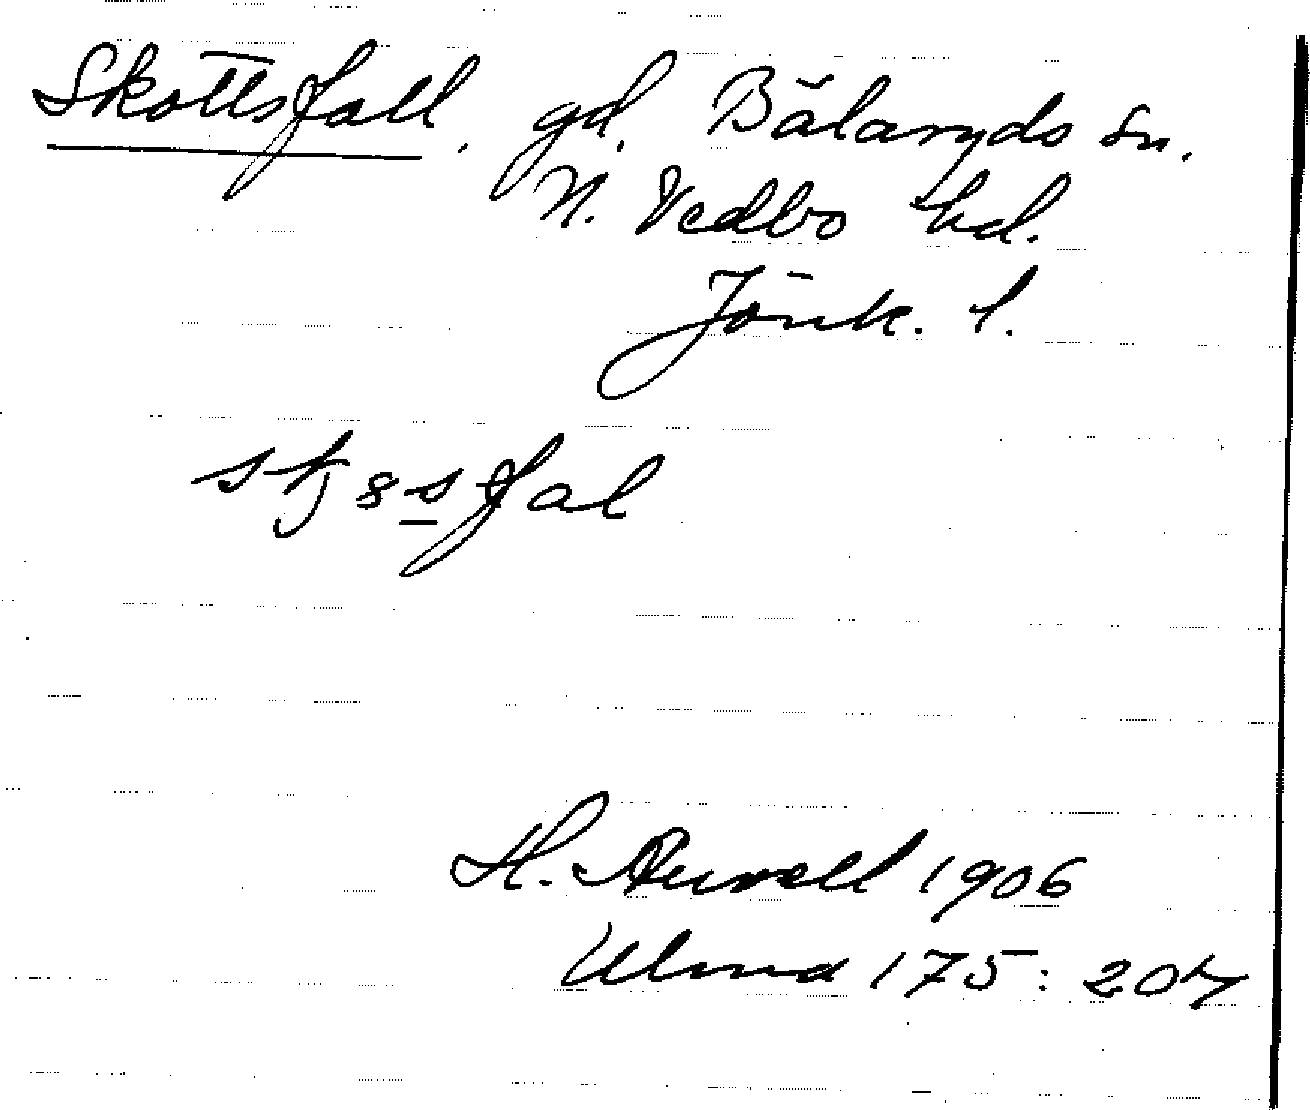 Skottsfall. gd. Bälaryds sn.
N. Vedbo hd.
Jönk. l.
skssfal
H. Aurell 1906
Ulma 175: 207